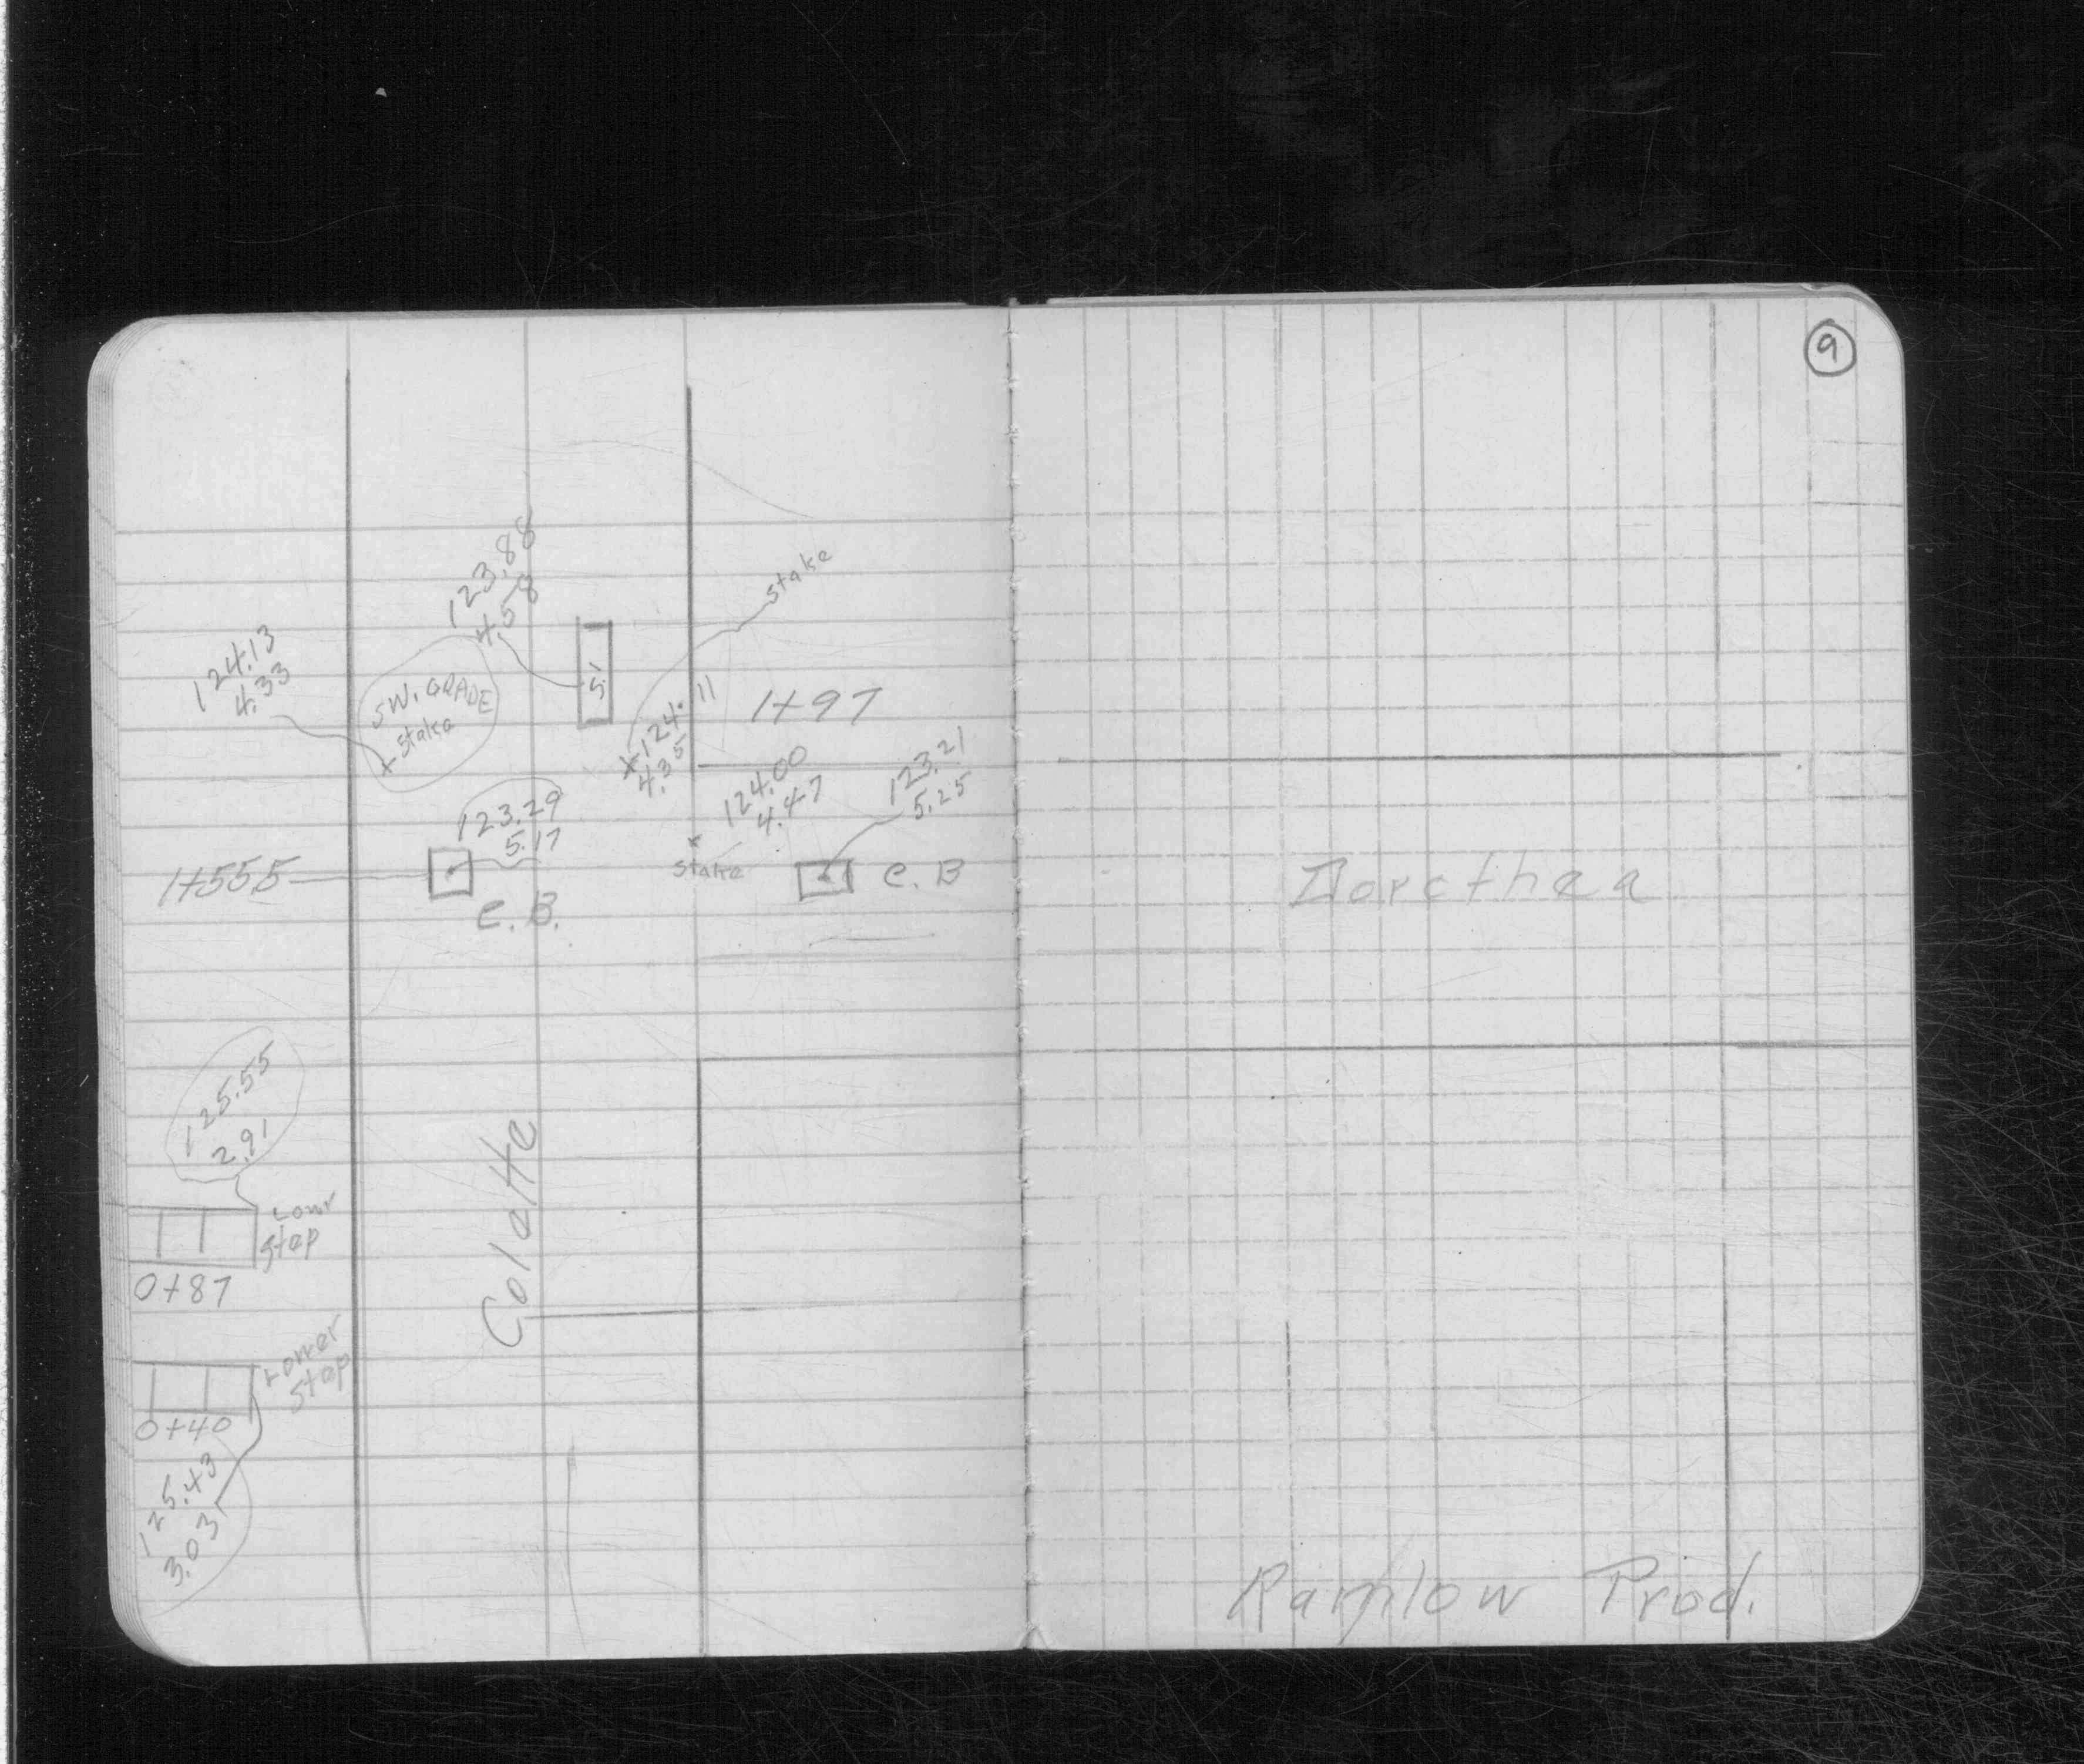 9
123.88
4.58
stake
124.13
4.33
SW. GRADE
stake
S.1
124.11
4.35
1+97
124.00
4.47
123.21
5.25
123.29
5.17
1+555
stake
C. B
C. B.
Dorothea
125.55
2.91
Lowr
Step
0+87
Colette
Lower
Step
0+40
125.43
3.03
Prod.